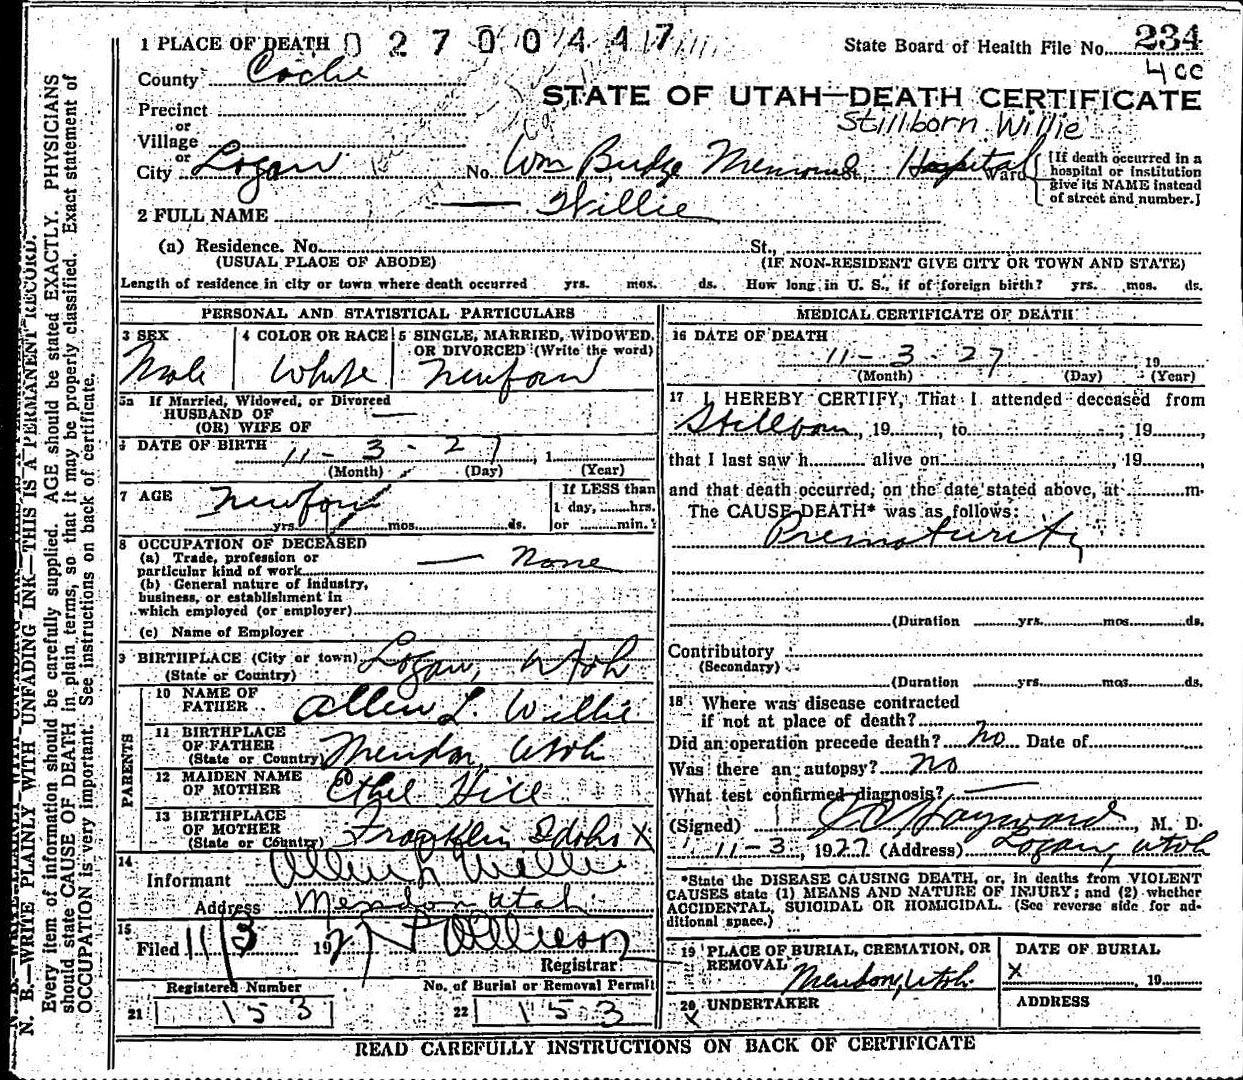 1 PLACE OF DEATH 02700447
State Board of Health File No. 234
4 cc
County Cache
STATE OF UTAH—DEATH CERTIFICATE
Stillborn Willie
Precinct
or
Village
or
City Logan No. Wm Budge Memorial St., Hospital Ward
[If death occurred in a hospital or institution give its NAME instead of street and number.]
2 FULL NAME — Willie
(a) Residence. No. St.,
(USUAL PLACE OF ABODE) (IF NON-RESIDENT GIVE CITY OR TOWN AND STATE)
Length of residence in city or town where death occurred yrs. mos. ds. How long in U. S., if of foreign birth? yrs. mos. ds.
PERSONAL AND STATISTICAL PARTICULARS
3 SEX
Male
4 COLOR OR RACE
White
5 SINGLE, MARRIED, WIDOWED,
OR DIVORCED (Write the word)
Newborn
5a If Married, Widowed, or Divorced
HUSBAND OF —
(OR) WIFE OF
6 DATE OF BIRTH 11 - 3 - 27, 1
(Month) (Day) (Year)
7 AGE Newborn
yrs. mos. ds.
If LESS than
1 day, hrs.
or min.
8 OCCUPATION OF DECEASED
(a) Trade, profession or
particular kind of work — None
(b) General nature of industry,
business, or establishment in
which employed (or employer)
(c) Name of Employer
9 BIRTHPLACE (City or town) Logan, Utah
(State or Country)
PARENTS
10 NAME OF
FATHER Allen L. Willie
11 BIRTHPLACE
OF FATHER
(State or Country) Mendon, Utah
12 MAIDEN NAME
OF MOTHER Ethel Hill
13 BIRTHPLACE
OF MOTHER
(State or Country) Franklin Idaho X
14
Informant Allen L Willie
Address Mendon Utah
15
Filed 11/3 1927
Registrar
Registered Number No. of Burial or Removal Permit
21 153 22 153
MEDICAL CERTIFICATE OF DEATH
16 DATE OF DEATH
11 - 3 - 27 19
(Month) (Day) (Year)
17 I HEREBY CERTIFY, That I attended deceased from
Stillborn, 19, to , 19,
that I last saw h alive on , 19,
and that death occurred, on the date stated above, at m.
The CAUSE DEATH* was as follows:
Prematurity
(Duration yrs. mos. ds.
Contributory
(Secondary)
(Duration yrs. mos. ds.
18 Where was disease contracted
if not at place of death?
Did an operation precede death? No Date of
Was there an autopsy? No
What test confirmed diagnosis? —
(Signed) J C Hayward, M. D.
11-3, 1927 (Address) Logan, Utah
*State the DISEASE CAUSING DEATH, or, in deaths from VIOLENT
CAUSES state (1) MEANS AND NATURE OF INJURY; and (2) whether
ACCIDENTAL, SUICIDAL OR HOMICIDAL. (See reverse side for ad-
ditional space.)
19 PLACE OF BURIAL, CREMATION, OR
REMOVAL
Mendon, Utah
DATE OF BURIAL
X 19
20 UNDERTAKER
X
ADDRESS
READ CAREFULLY INSTRUCTIONS ON BACK OF CERTIFICATE
N. B.—WRITE PLAINLY WITH UNFADING INK—THIS IS A PERMANENT RECORD.
Every item of information should be carefully supplied. AGE should be stated EXACTLY. PHYSICIANS
should state CAUSE OF DEATH in plain terms, so that it may be properly classified. Exact statement of
OCCUPATION is very important. See instructions on back of certificate.